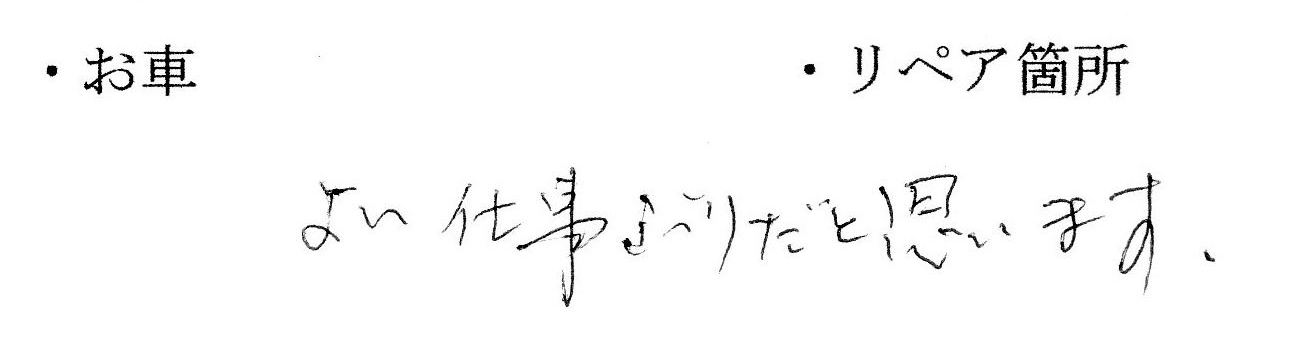 ・お車 ・リペア箇所
よい仕事ぶりだと思います、